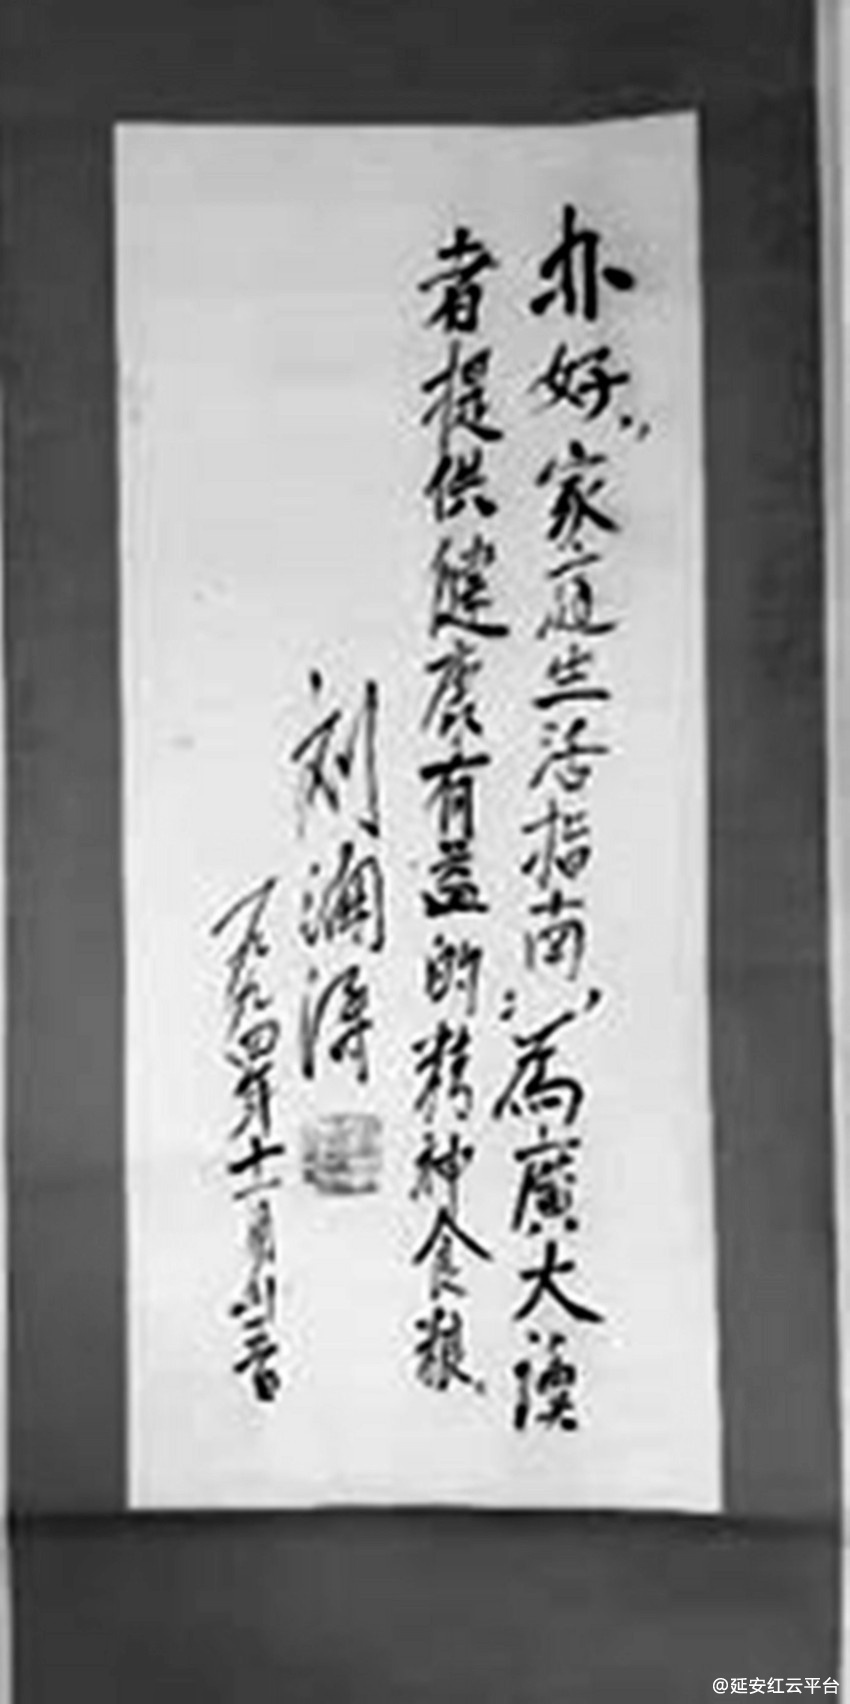 办好"家庭生活指南",为廣大读
者提供健康有益的精神食粮。
刘澜涛
一九九四年十一月廿二日
@延安红云平台